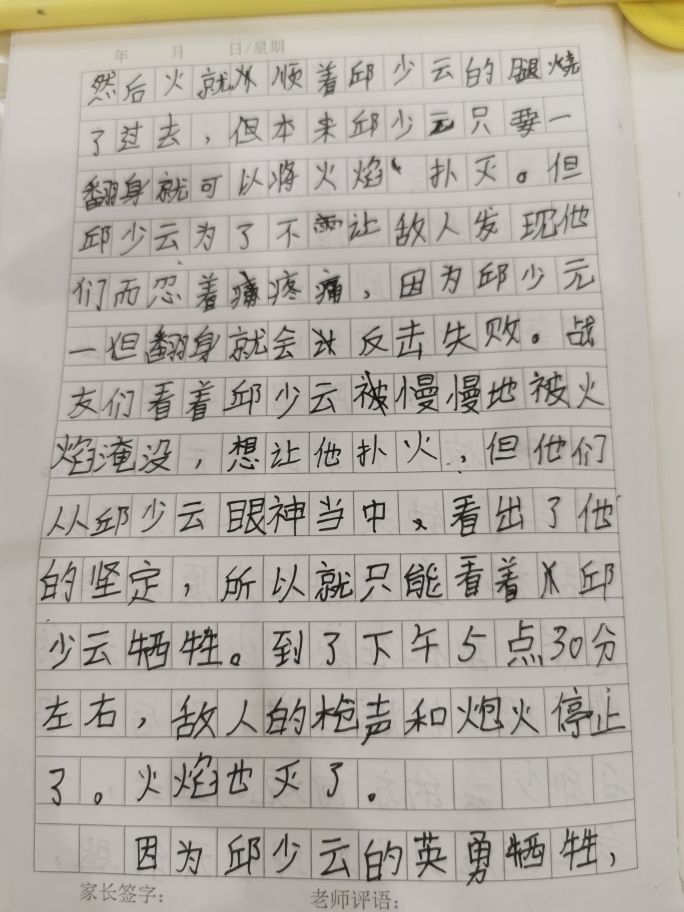 年 月 日/星期
然后火就顺着邱少云的腿烧
了过去，但本来邱少云只要一
翻身就可以将火焰扑灭。但
邱少云为了不让敌人发现他
们而忍着疼痛，因为邱少元
一但翻身就会反击失败。战
友们看着邱少云被慢慢地被火
焰淹没，想让他扑火，但他们
从邱少云眼神当中、看出了他
的坚定，所以就只能看着邱
少云牺牲。到了下午5点30分
左右，敌人的枪声和炮火停止
了。火焰也灭了。
因为邱少云的英勇牺牲，
家长签字： 老师评语：